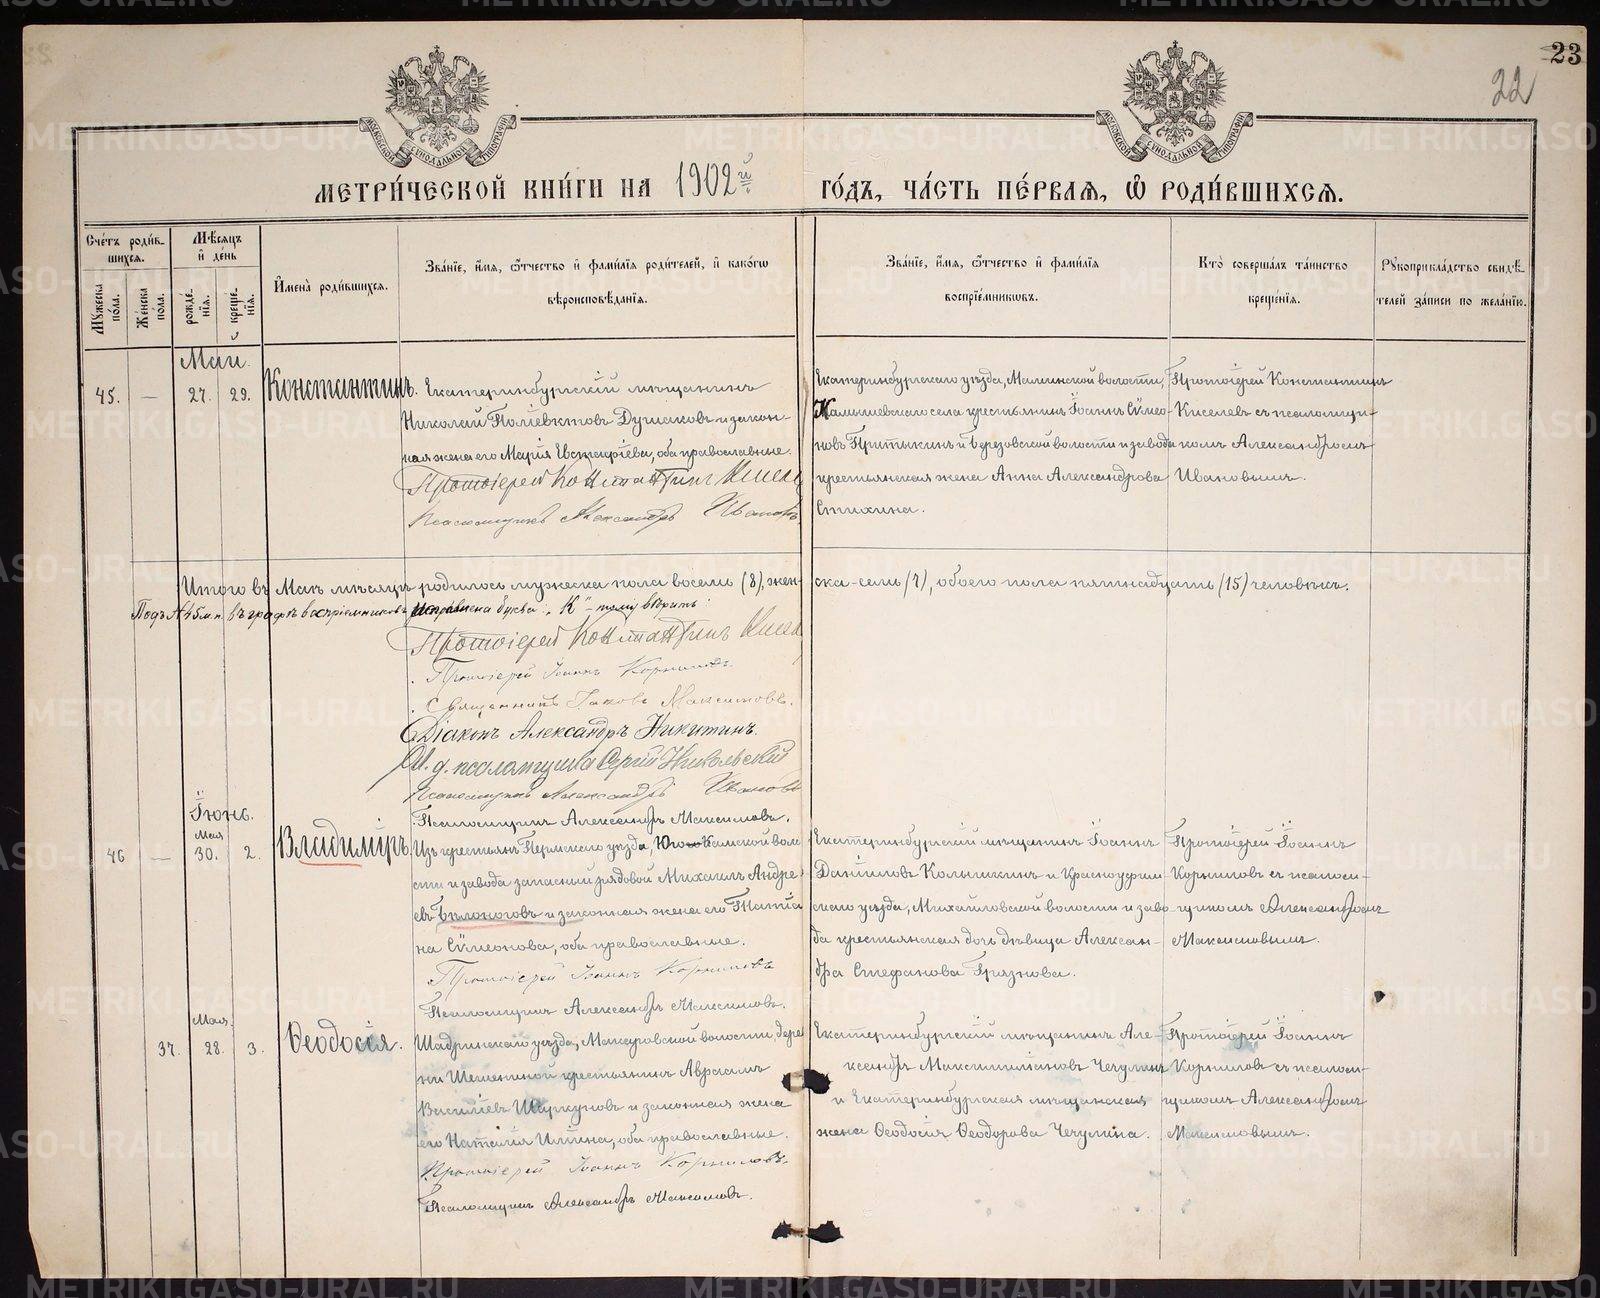 23
22
МОСКОВСКОЙ СѴНОДАЛЬНОЙ ТИПОГРАФІИ
МОСКОВСКОЙ СѴНОДАЛЬНОЙ ТИПОГРАФІИ
МЕТРИ́ЧЕСКОЙ КНИ́ГИ НА 1902й ГО́ДЪ, ЧА́СТЬ ПЕ́РВАѦ, Ѡ҆ РОДИ́ВШИХСѦ.
Сче́тъ роди́в-
шихся.
Мѣ́сяцъ
и҆ де́нь
Мꙋ́жеска по́ла.
Же́нска по́ла.
рожде́-
нїѧ.
креще́-
нїѧ.
И҆мена̀ роди́вшихсѧ.
Зва́нїе, и҆́мѧ, ѻ҆́тчество и҆ фами́лїѧ роди́телей, и҆ како́гѡ
вѣроисповѣ́данїѧ.
Зва́нїе, и҆́мѧ, ѻ҆́тчество и҆ фами́лїѧ
воспрїе́мникѡвъ.
Кто̀ соверша́лъ та́инство
креще́нїѧ.
Рꙋкоприкла́дство свидѣ́-
телей за́писи по жела́нїю.
Май.
45. — 27. 29. Константинъ.
Екатеринбургскій мѣщанинъ
Николай Поліевктовъ Душаковъ и закон-
ная жена его Марія Евстафіева, оба православные.
Протоіерей Константинъ Кисел
Псаломщикъ Александръ Ивановъ.
Екатеринбургскаго уѣзда, Маминской волости,
Камышевскаго села крестьянинъ Іоаннъ Сѵмео-
новъ Притыкинъ и Березовской волости и завода
крестьянская жена Анна Александрова
Стихина.
Протоіерей Константинъ
Киселевъ съ псаломщи-
комъ Александромъ
Ивановымъ.
Итого въ Маѣ мѣсяцѣ родилось мужеска пола восемь (8), жен- ска-семь (7), обоего пола пятнадцать (15) человѣкъ.
Подъ № 45 м.п. въ графѣ воспріемниковъ исправлена буква: „К"-тому вѣрить:
Протоіерей Константинъ Кисел
Протоіерей Іоаннъ Корниловъ.
Священникъ Іаковъ Максимовъ.
Діаконъ Александръ Никитинъ.
И. д. псаломщика Сергій Никольскій
Псаломщикъ Александръ Ивановъ
Псаломщикъ Александръ Максимовъ.
Іюнь.
Мая
46 — 30. 2. Владиміръ.
Изъ крестьянъ Пермскаго уѣзда, Юго-Камской воло
сти и завода запасный рядовой Михаилъ Андре-
евъ Бѣлоноговъ и законная жена его Татіа
на Сѵмеонова, оба православные.
Протоіерей Іоаннъ Корниловъ
Псаломщикъ Александръ Максимовъ.
Екатеринбургскій мѣщанинъ Іоаннъ
Даніиловъ Колышкинъ и Красноуфим-
скаго уѣзда, Михайловской волости и заво-
да крестьянская дочь дѣвица Алексан-
дра Стефанова Грязнова.
Протоіерей Іоаннъ
Корниловъ съ псалом-
щикомъ Александромъ
Максимовымъ.
Мая.
37. 28. 3. Ѳеодосія.
Шадринскаго уѣзда, Макаровской волости, дерев
ни Шешениной крестьянинъ Авраамъ
Васильевъ Шаркуновъ и законная жена
его Наталія Ильина, оба православные.
Протоіерей Іоаннъ Корниловъ.
Псаломщикъ Александръ Максимовъ.
Екатеринбургскій мѣщанинъ Але-
ксандръ Максимиліановъ Чечулинъ
и Екатеринбургская мѣщанская
жена Ѳеодосія Ѳеодорова Чечулина.
Протоіерей Іоаннъ
Корниловъ съ псалом-
щикомъ Александромъ
Максимовымъ.
METRIKI.GASO-URAL.RU